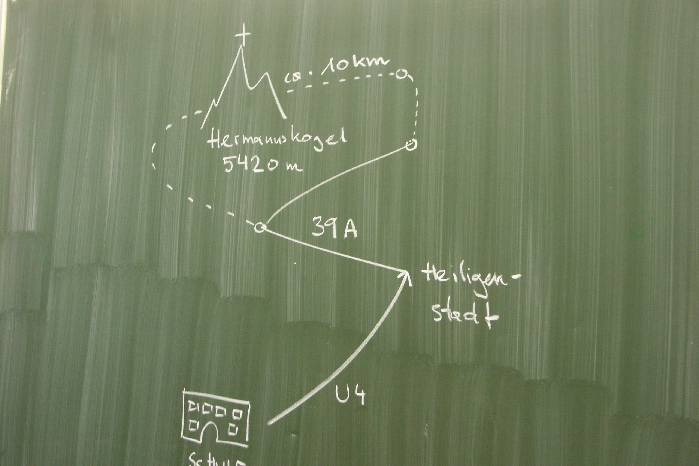 ca. 10km
Hermannskogel
5420 m
39A
Heiligen-
stadt
U4
Schule